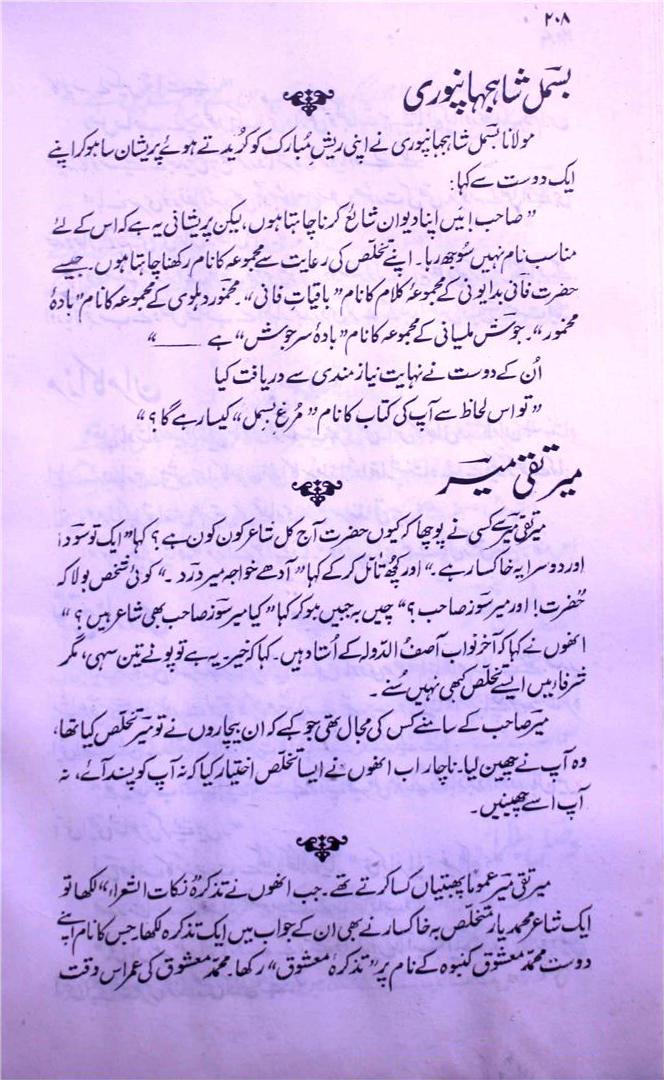 ۲۰۸
بسمل شاہجہانپوری
مولانا بسمل شاہجہانپوری نے اپنی ریشِ مبارک کو کُریدتے ہوئے پریشان سا ہو کر اپنے
ایک دوست سے کہا:
”صاحب! میں اپنا دیوان شائع کرنا چاہتا ہوں، لیکن پریشانی یہ ہے کہ اس کے لئے
مناسب نام نہیں سُوجھ رہا۔ اپنے تخلّص کی رعایت سے مجموعہ کا نام رکھنا چاہتا ہوں۔ جیسے
حضرت فانی بدایونی کے مجموعۂ کلام کا نام ”باقیاتِ فانی“۔ مخمور دہلوی کے مجموعہ کا نام ”بادۂ
مخمور“۔ جوش ملسیانی کے مجموعہ کا نام ”بادۂ سرجوش“ ہے ____“
اُن کے دوست نے نہایت نیازمندی سے دریافت کیا
”تو اس لحاظ سے آپ کی کتاب کا نام ”مُرغِ بسمل“ کیسا رہے گا؟“
میر تقی میر
میر تقی میر سے کسی نے پوچھا کہ کیوں حضرت آج کل شاعر کون کون ہے؟ کہا ”ایک تو سودا
اور دوسرا یہ خاکسار ہے۔“ اور کچھ تامّل کر کے کہا ”آدھے خواجہ میر درد۔“ کوئی شخص بولا کہ
حضرت! اور میر سوز صاحب؟“ چیں بہ جبیں ہو کر کہا ”کیا میر سوز صاحب بھی شاعر ہیں؟“
انھوں نے کہا کہ آخر نواب آصفُ الدّولہ کے اُستاد ہیں۔ کہا کہ خیر یہ ہے تو پونے تین سہی، مگر
شرفاء میں ایسے تخلّص کبھی نہیں سُنے۔
میر صاحب کے سامنے کس کی مجال تھی جو کہے کہ ان بیچاروں نے تو میر تخلّص کیا تھا،
وہ آپ نے چھین لیا۔ ناچار اب انھوں نے ایسا تخلّص اختیار کیا کہ نہ آپ کو پسند آئے، نہ
آپ اسے چھینیں۔
میر تقی میر عموماً پھبتیاں کسا کرتے تھے۔ جب انھوں نے تذکرہ ”نکات الشعراء“ لکھا تو
ایک شاعر محمد یار متخلّص بہ خاکسار نے بھی ان کے جواب میں ایک تذکرہ لکھا۔ جس کا نام اپنے
دوست محمّد معشوق کنبوہ کے نام پر ”تذکرۂ معشوق“ رکھا۔ محمد معشوق کی عمر اس وقت